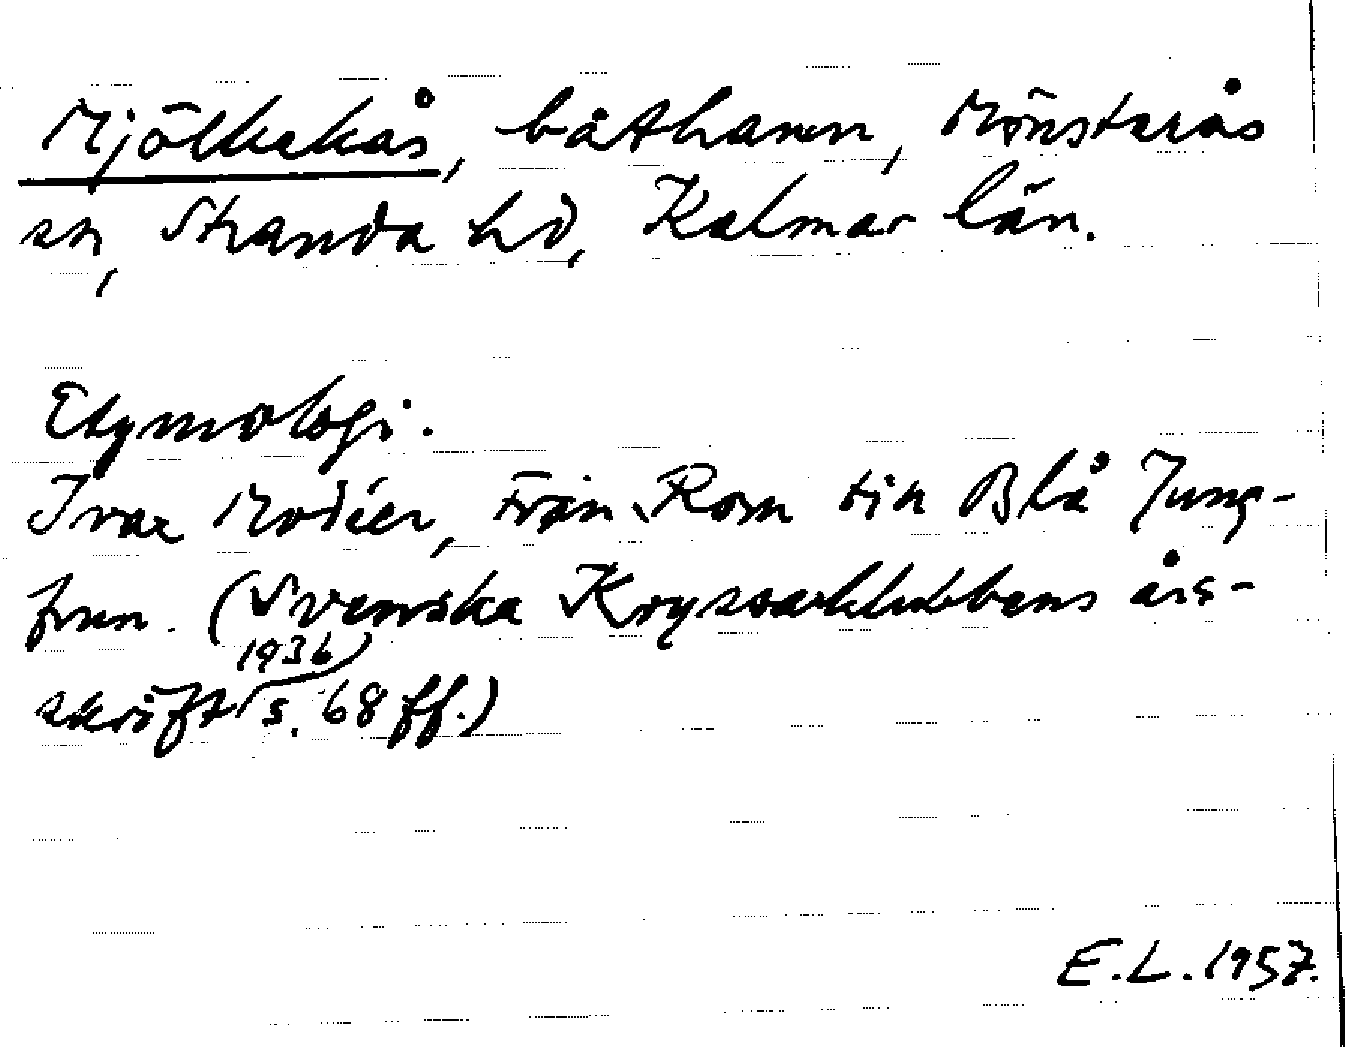 Mjölkekås, båthamn, Mönsterås
sn, Stranda hd, Kalmar län.
Etymologi.
Ivar Modéer, Från Rom till Blå Jung-
frun. (Svenska Kryssarklubbens års-
skrift 1936, s. 68 ff.)
E.L. 1957.